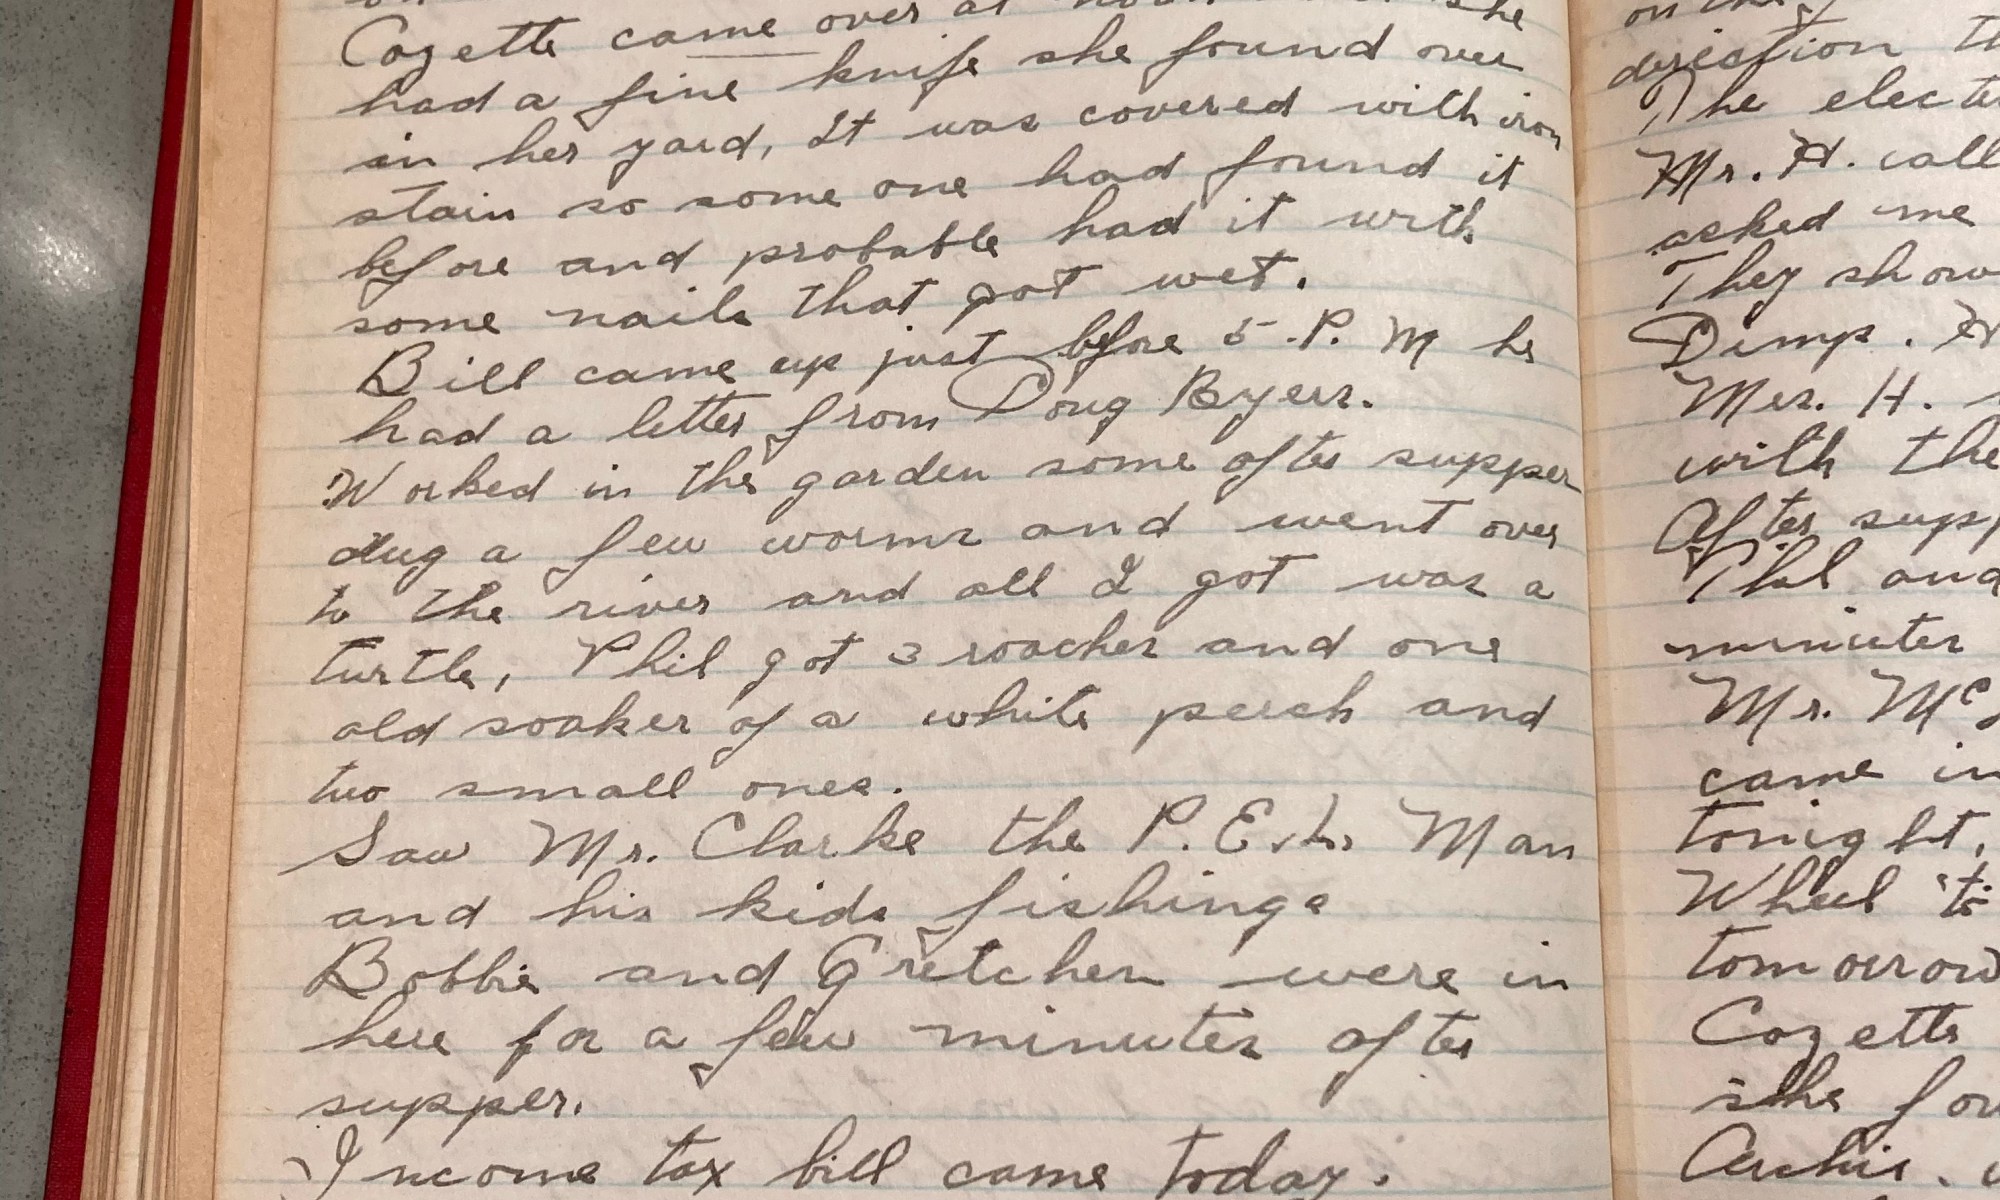 Cozette came over at noon she
had a fine knife she found over
in her yard, It was covered with iron
stain so some one had found it
before and probable had it with
some nails that got wet.
Bill came up just before 5 P. M he
had a letter from Doug Byers.
Worked in the garden some after supper
dug a few worms and went over
to the river and all I got was a
turtle, Phil got 3 roaches and one
old soaker of a white perch and
two small ones.
Saw Mr. Clarke the P. E. L. Man
and his kids fishing.
Bobbie and Gretchen were in
here for a few minutes after
supper.
Income tax bill came today.
on the
direction
The
Mr. H.
asked me
They
Dimp. H
Mrs. H.
with the
After
Phil and
minutes
Mr.
came in
tonight,
Wheel to
tomorrow
Cozette
she
Archie.